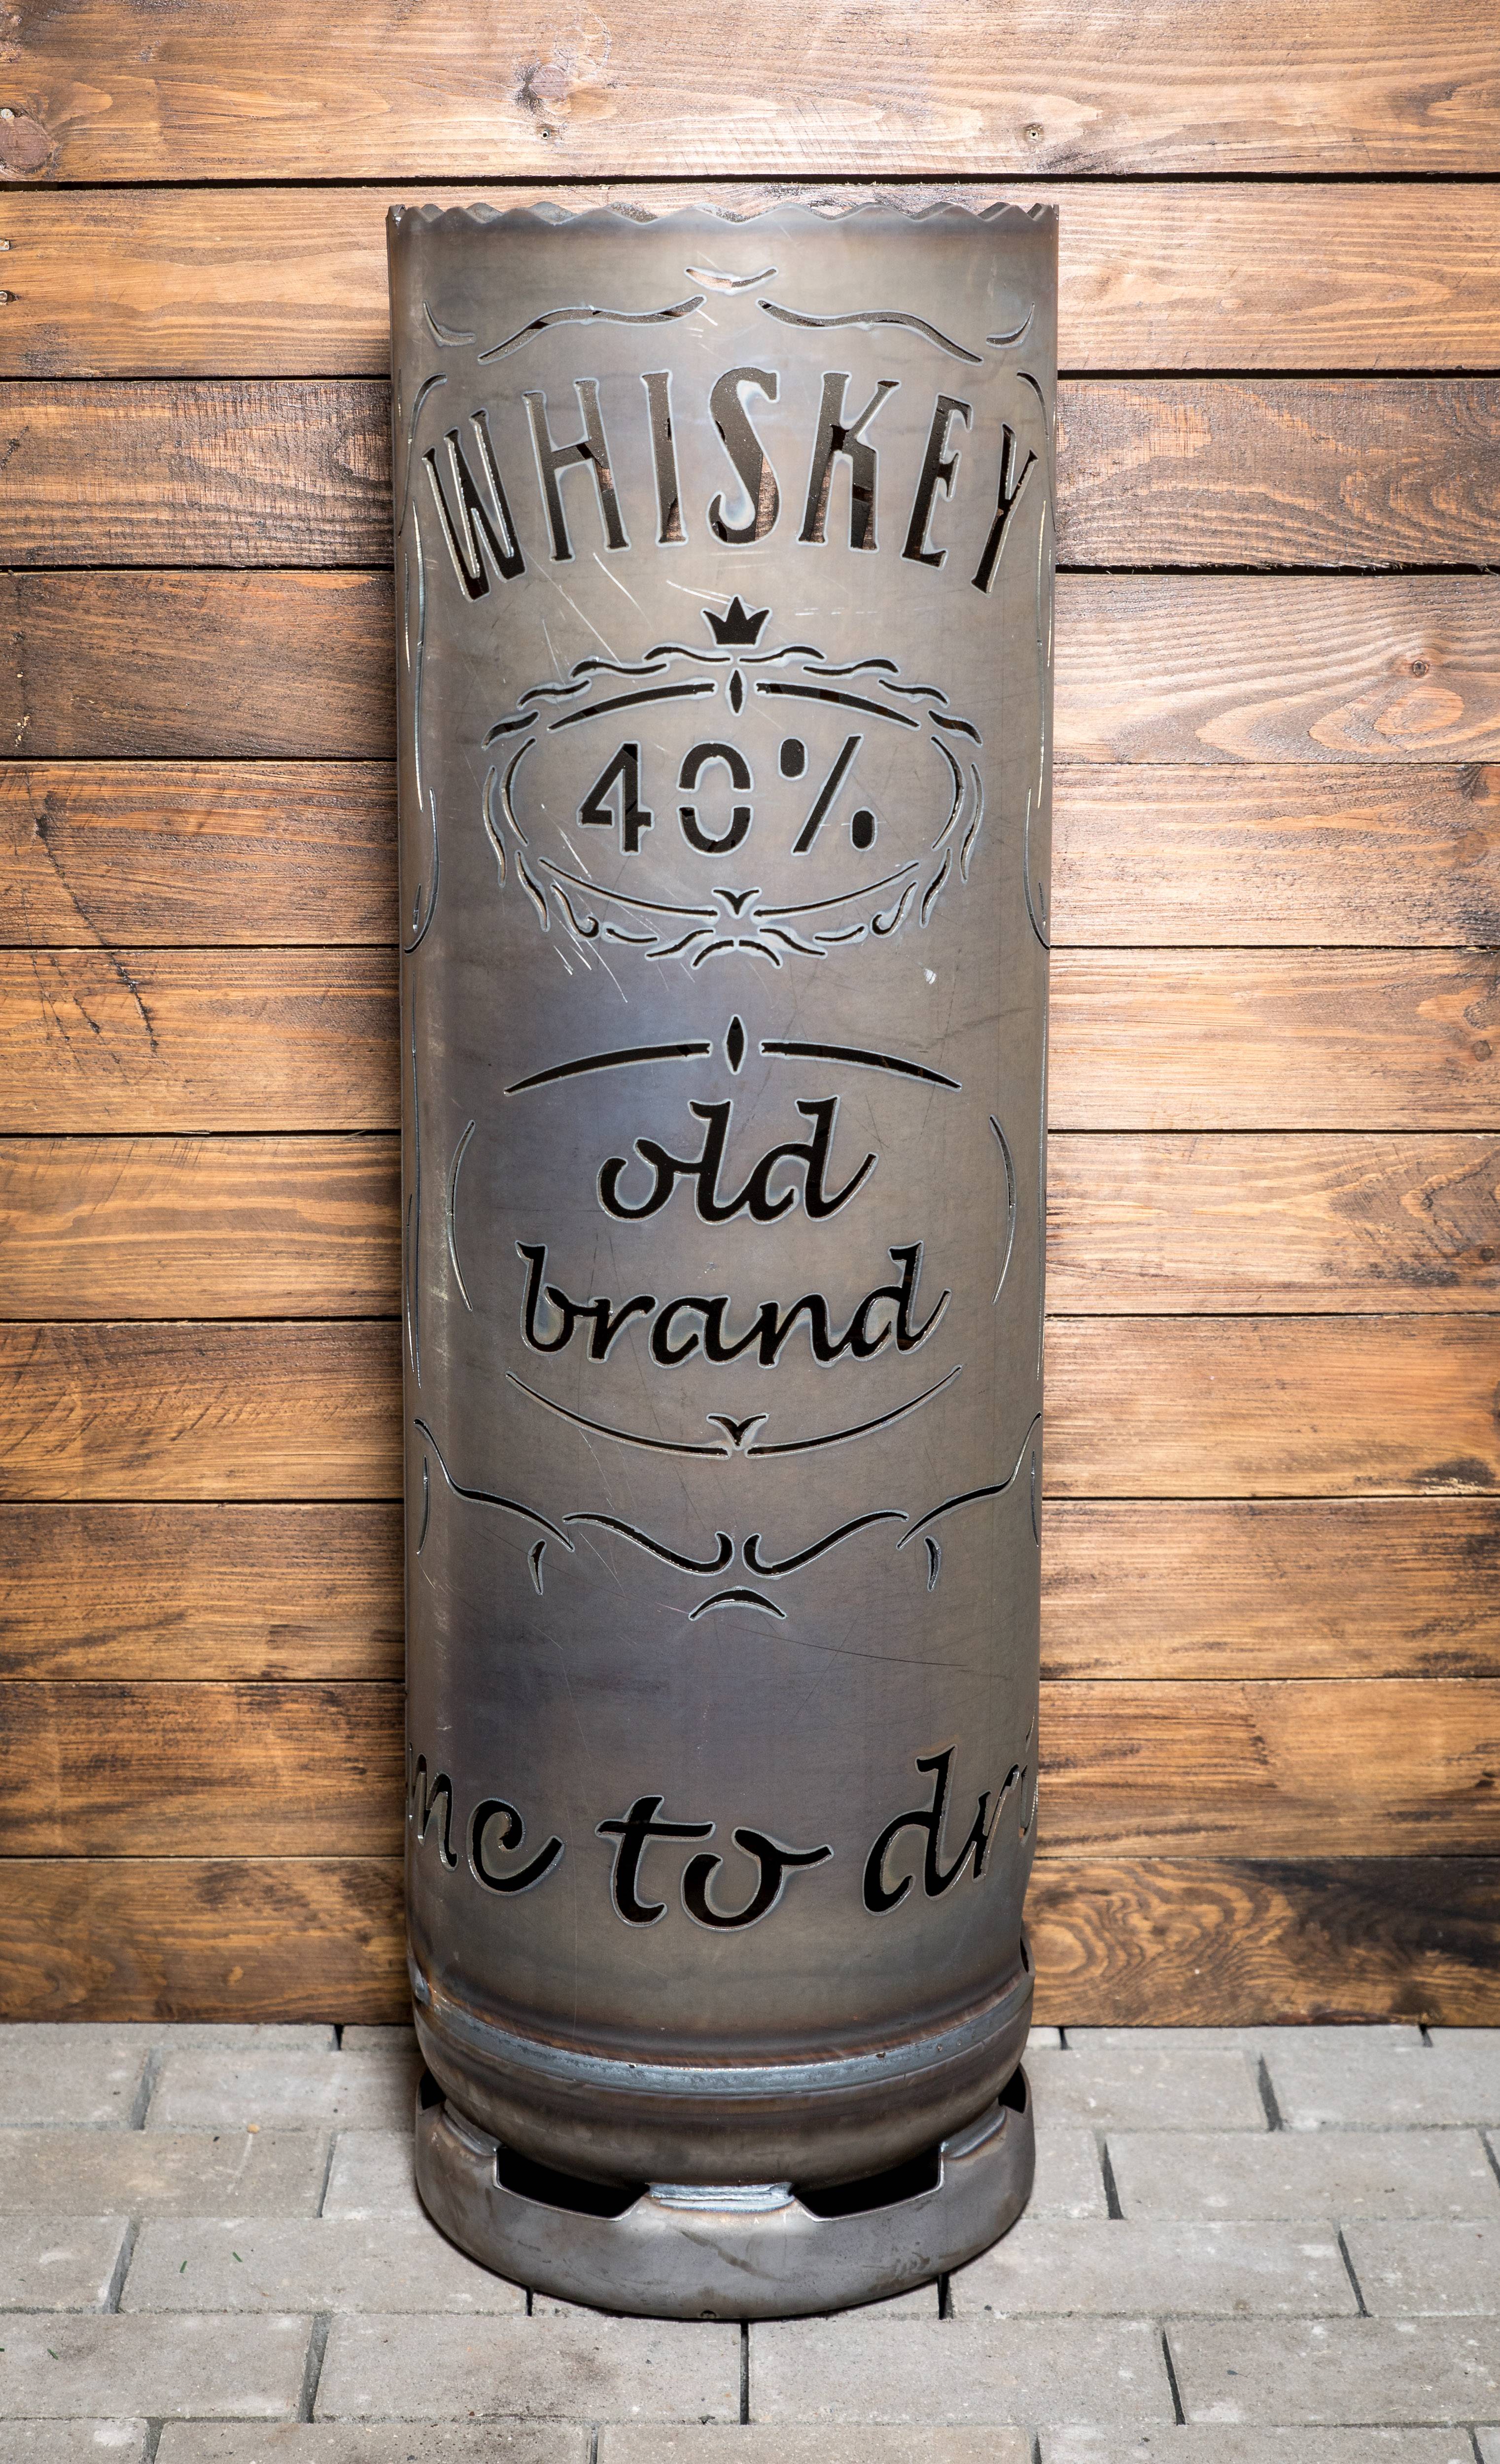 WHISKEY
40%
old
brand
me to dri